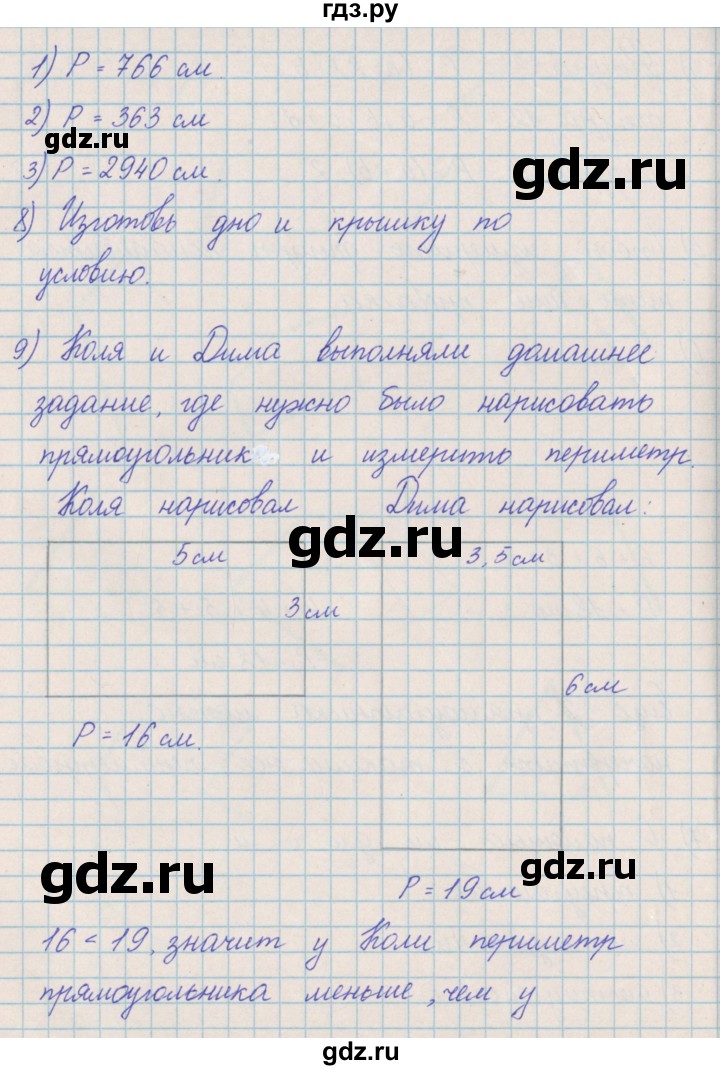 гдз.ру
1) P = 766 см
2) P = 363 см
gdz.ru
gdz.ru
3) P = 2940 см.
8) Изготовь дно и крышку по
условию.
9) Коля и Дима выполняли домашнее
задание, где нужно было нарисовать
прямоугольник и измерить периметр.
Коля нарисовал Дима нарисовал:
gdz.ru
5 см 3,5 см
3 см
6 см
P = 16 см.
gdz.ru
gdz.ru
P = 19 см
16 < 19, значит у Коли периметр
прямоугольника меньше, чем у
gdz.ru